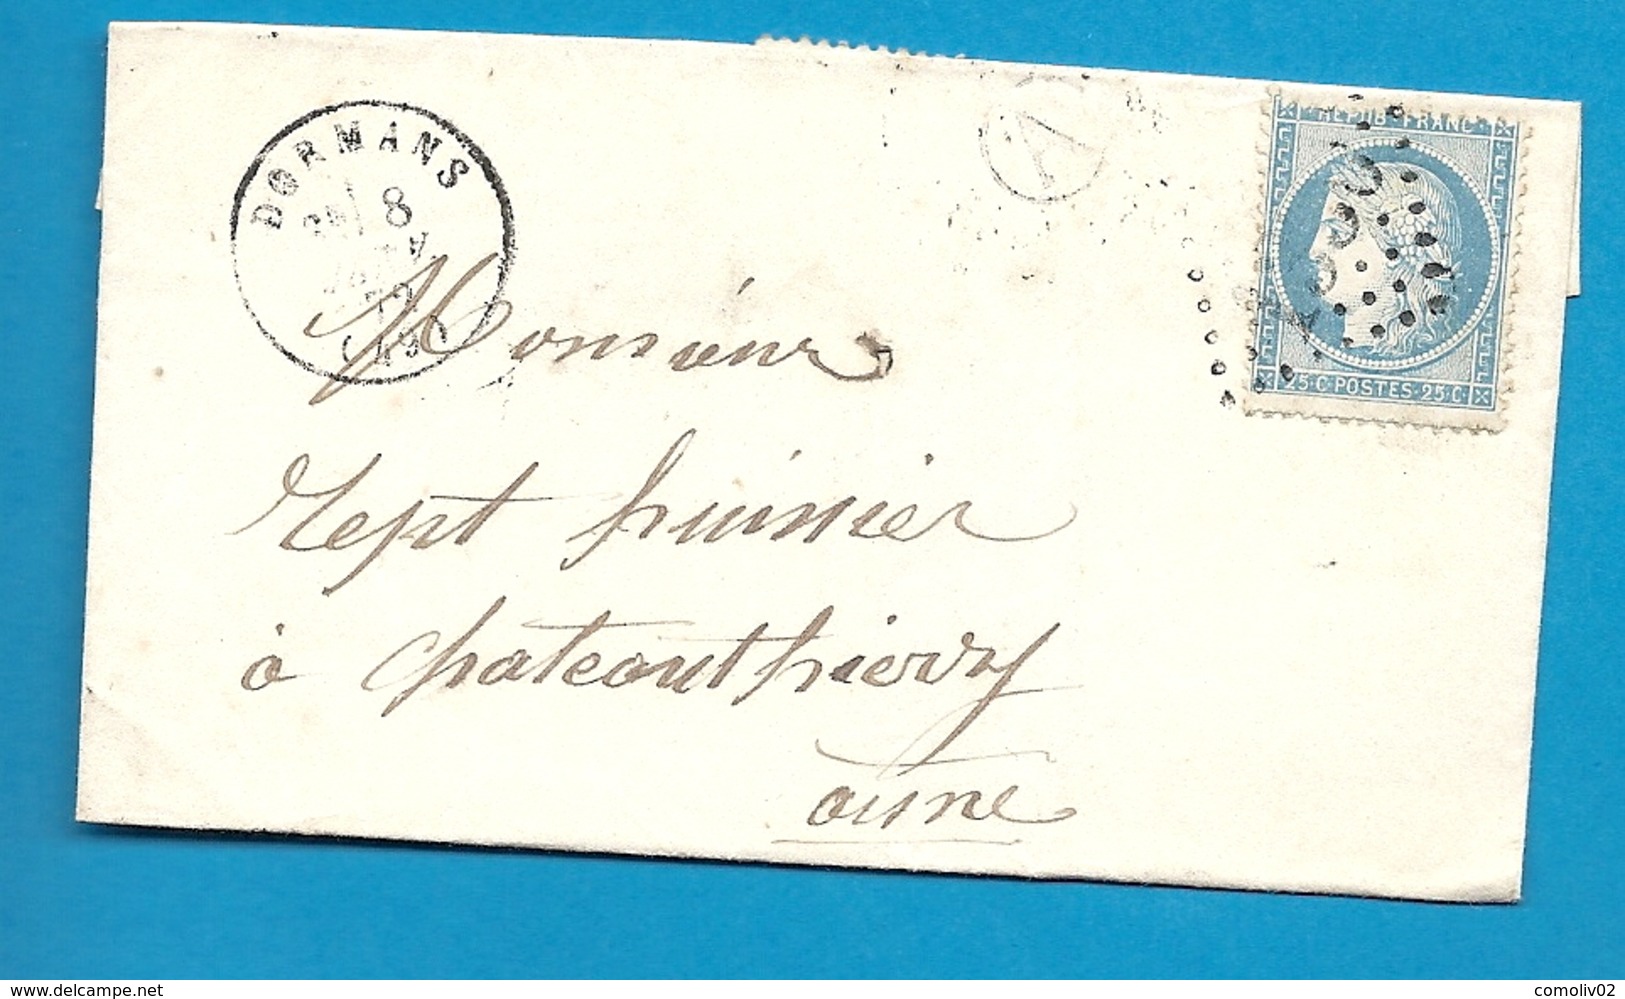 DORMANS
8
(49)
A
REPUB·FRANC·
25·C·POSTES·25·C·
1333
Monsieur
Rept huissier
à chateauthierry
aisne
delcampe.net
comoliv02